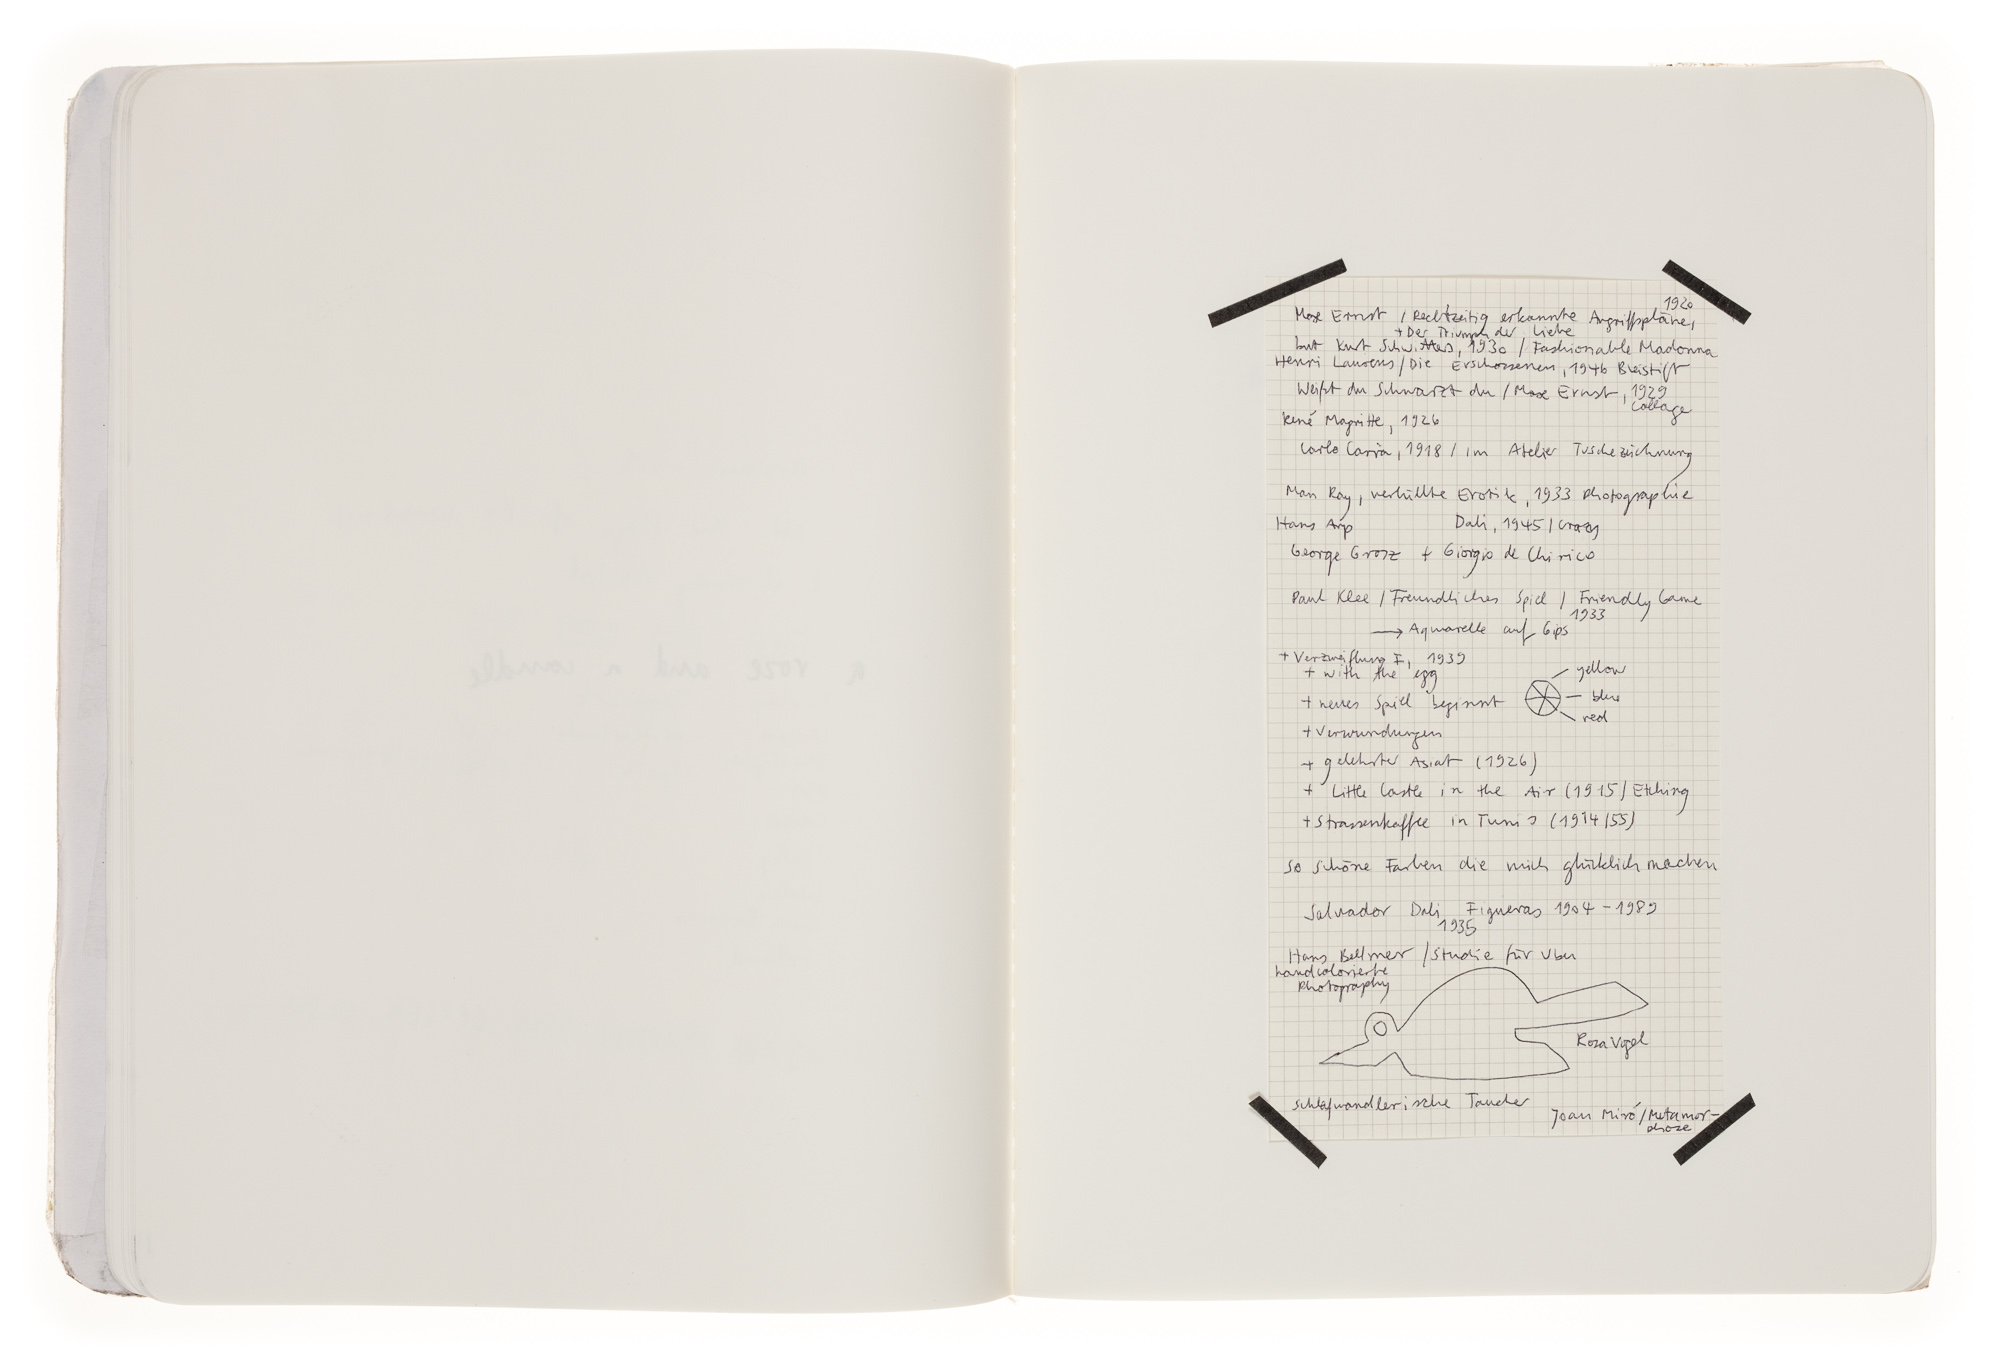 1920
Max Ernst / Rechtzeitig erkannte Angriffspläne,
+ Der Triumph der Liebe
Kurt Schwitters, 1930 / Fashionable Madonna
Henri Laurens / Die Erschossenen, 1946 Bleistift
Weißt du Schwarzt du / Max Ernst, 1929
Collage
René Magritte, 1926
Carlo Carrà, 1918 / im Atelier Tuschezeichnung
Man Ray, verhüllte Erotik, 1933 Photographie
Hans Arp Dali, 1945 / crazy
George Grosz + Giorgio de Chirico
Paul Klee / Freundliches Spiel / Friendly Game
1933
→ Aquarelle auf Gips
+ Verzweiflung I, 1939
+ with the egg
yellow
+ neues Spiel beginnt
blue
red
+ Verwundungen
+ gelehrter Asiat (1926)
+ Little Castle in the Air (1915 / Etching
+ Strassenkaffee in Tunis (1914/55)
so schöne Farben die mich glücklich machen
Salvador Dali Figueras 1904 – 1989
1935
Hans Bellmer / Studie für
handcolorierte
Photography
Rosa Vogel
Schlafwandlerische Taucher
Joan Miró / Metamor-
phose
a rose and a candle